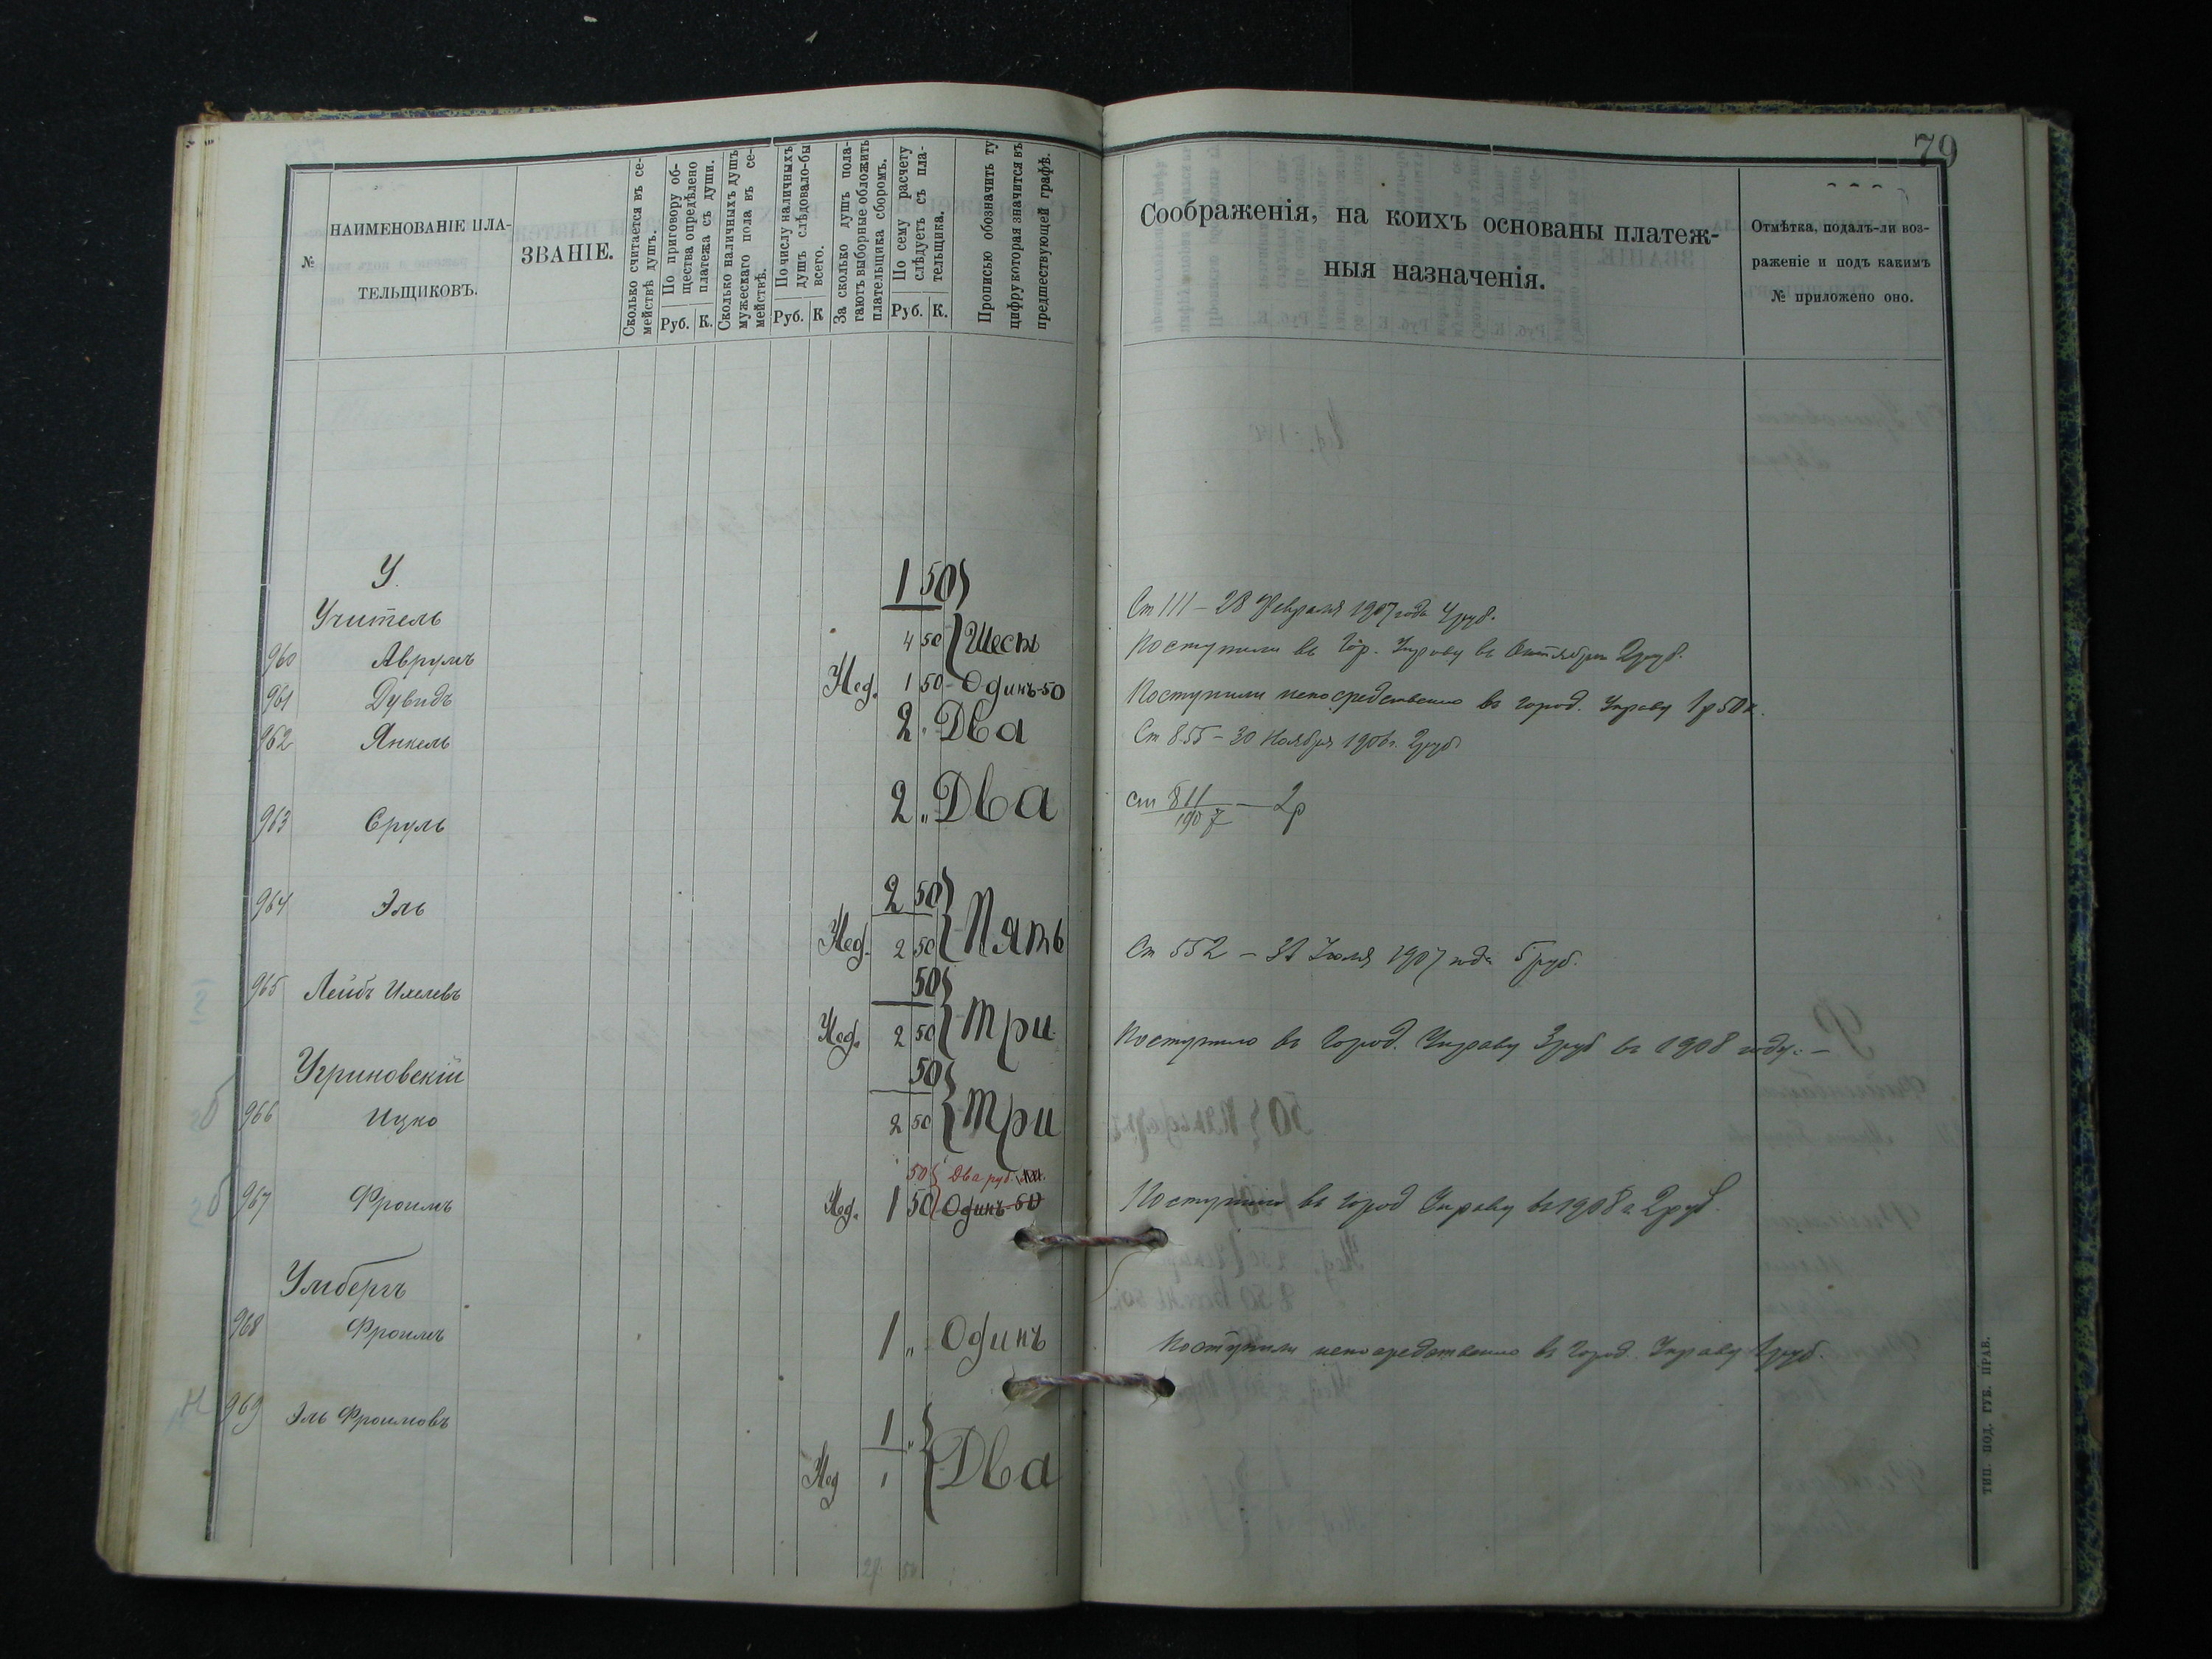 79
№
НАИМЕНОВАНІЕ ПЛА-
ТЕЛЬЩИКОВЪ.
ЗВАНІЕ.
Сколько считается въ се-
мействѣ душъ.
По приговору об-
щества опредѣлено
платежа съ души.
Руб. К.
Сколько наличныхъ душъ
мужескаго пола въ се-
мействѣ.
По числу наличныхъ
душъ слѣдовало-бы
всего.
Руб. К
За сколько душъ пола-
гаютъ выборные обложить
плательщика сборомъ.
По сему расчету
слѣдуетъ съ пла-
тельщика.
Руб. К.
Прописью обозначить ту
цифру которая значится въ
предшествующей графѣ.
Соображенія, на коихъ основаны платеж-
ныя назначенія.
Отмѣтка, подалъ-ли воз-
раженіе и подъ какимъ
№ приложено оно.
У.
1 50
Учитель
Ст 111 – 28 Февраля 1907 года 4 руб.
960 Аврумъ 4 50 Шесть
Поступили въ Гор. Управу въ Октябрѣ 2 руб.
961 Дувидъ Нед. 1 50 Одинъ-50
Поступили непосредственно въ город. Управу 1 р 50 к.
962 Янкель 2 " Два
Ст 855 – 30 Ноября 1906 г. 2 руб
963 Сруль 2 " Два
ст 811/1907 — 2 р
964 Эль 2 50
Нед. 2 50 Пять
Ст 552 – 31 Іюля 1907 года 5 руб.
965 Лейбъ Ихелевъ 50
Нед. 2 50 Три
Поступило въ Город. Управу 3 руб въ 1908 году. –
Угриновскій 50
966 Ицко 2 50 Три
50 Два руб.
967 Фроимъ Нед. 1 50 Одинъ-50
Поступило въ город Управу въ 1908 г. 2 руб.
Умбергъ
968 Фроимъ 1 " Одинъ
Поступили непосредственно въ Город. Управу 1 руб.
969 Эль Фроимовъ 1 "
Нед 1 Два
ТИП. ПОД. ГУБ. ПРАВ.